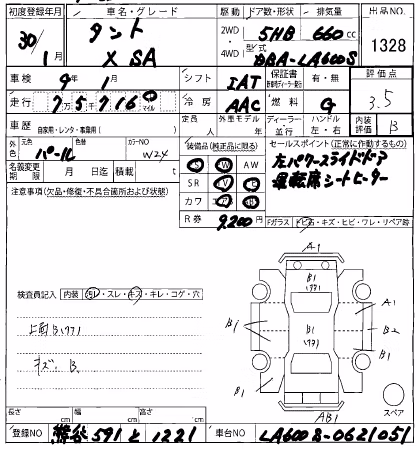 初度登録年月 車名・グレード 駆動 ドア数・形状 排気量 出品NO.
30/1月 タント X SA 2WD 4WD 5HB 660cc 1328
型式 DBA-LA600S
車検 9年1月 シフト IAT 保証書 有・無 評価点 3.5
走行 7万5716 マイル 冷房 AAC 燃料 G
車歴 自家用・レンタ・事業用( ) 定員外車モデル年 ディーラー 並行 ハンドル 左・右 内装 B
外色 元色 パール 色替 カラーNO W24
装備品(純正品に限る) セールスポイント(正常に作動するもの)
左パワースライドドア
運転席シートヒーター
名義変更期限 月 日迄 積載 t
SR カワ AW
R券 9,200円
注意事項(欠品・修復・不具合箇所および状態)
Fガラス トビ石・キズ・ヒビ・ワレ・リペア跡
検査員記入 内装 汚レ・スレ・キズ・キレ・コゲ・穴
キズ B
A1
B1
B1
B1
A1
B2
B1
B1
AB1
スペア
長さ cm 幅 cm 高さ cm
登録NO 591 と 1221 車台NO LA600S-0621051